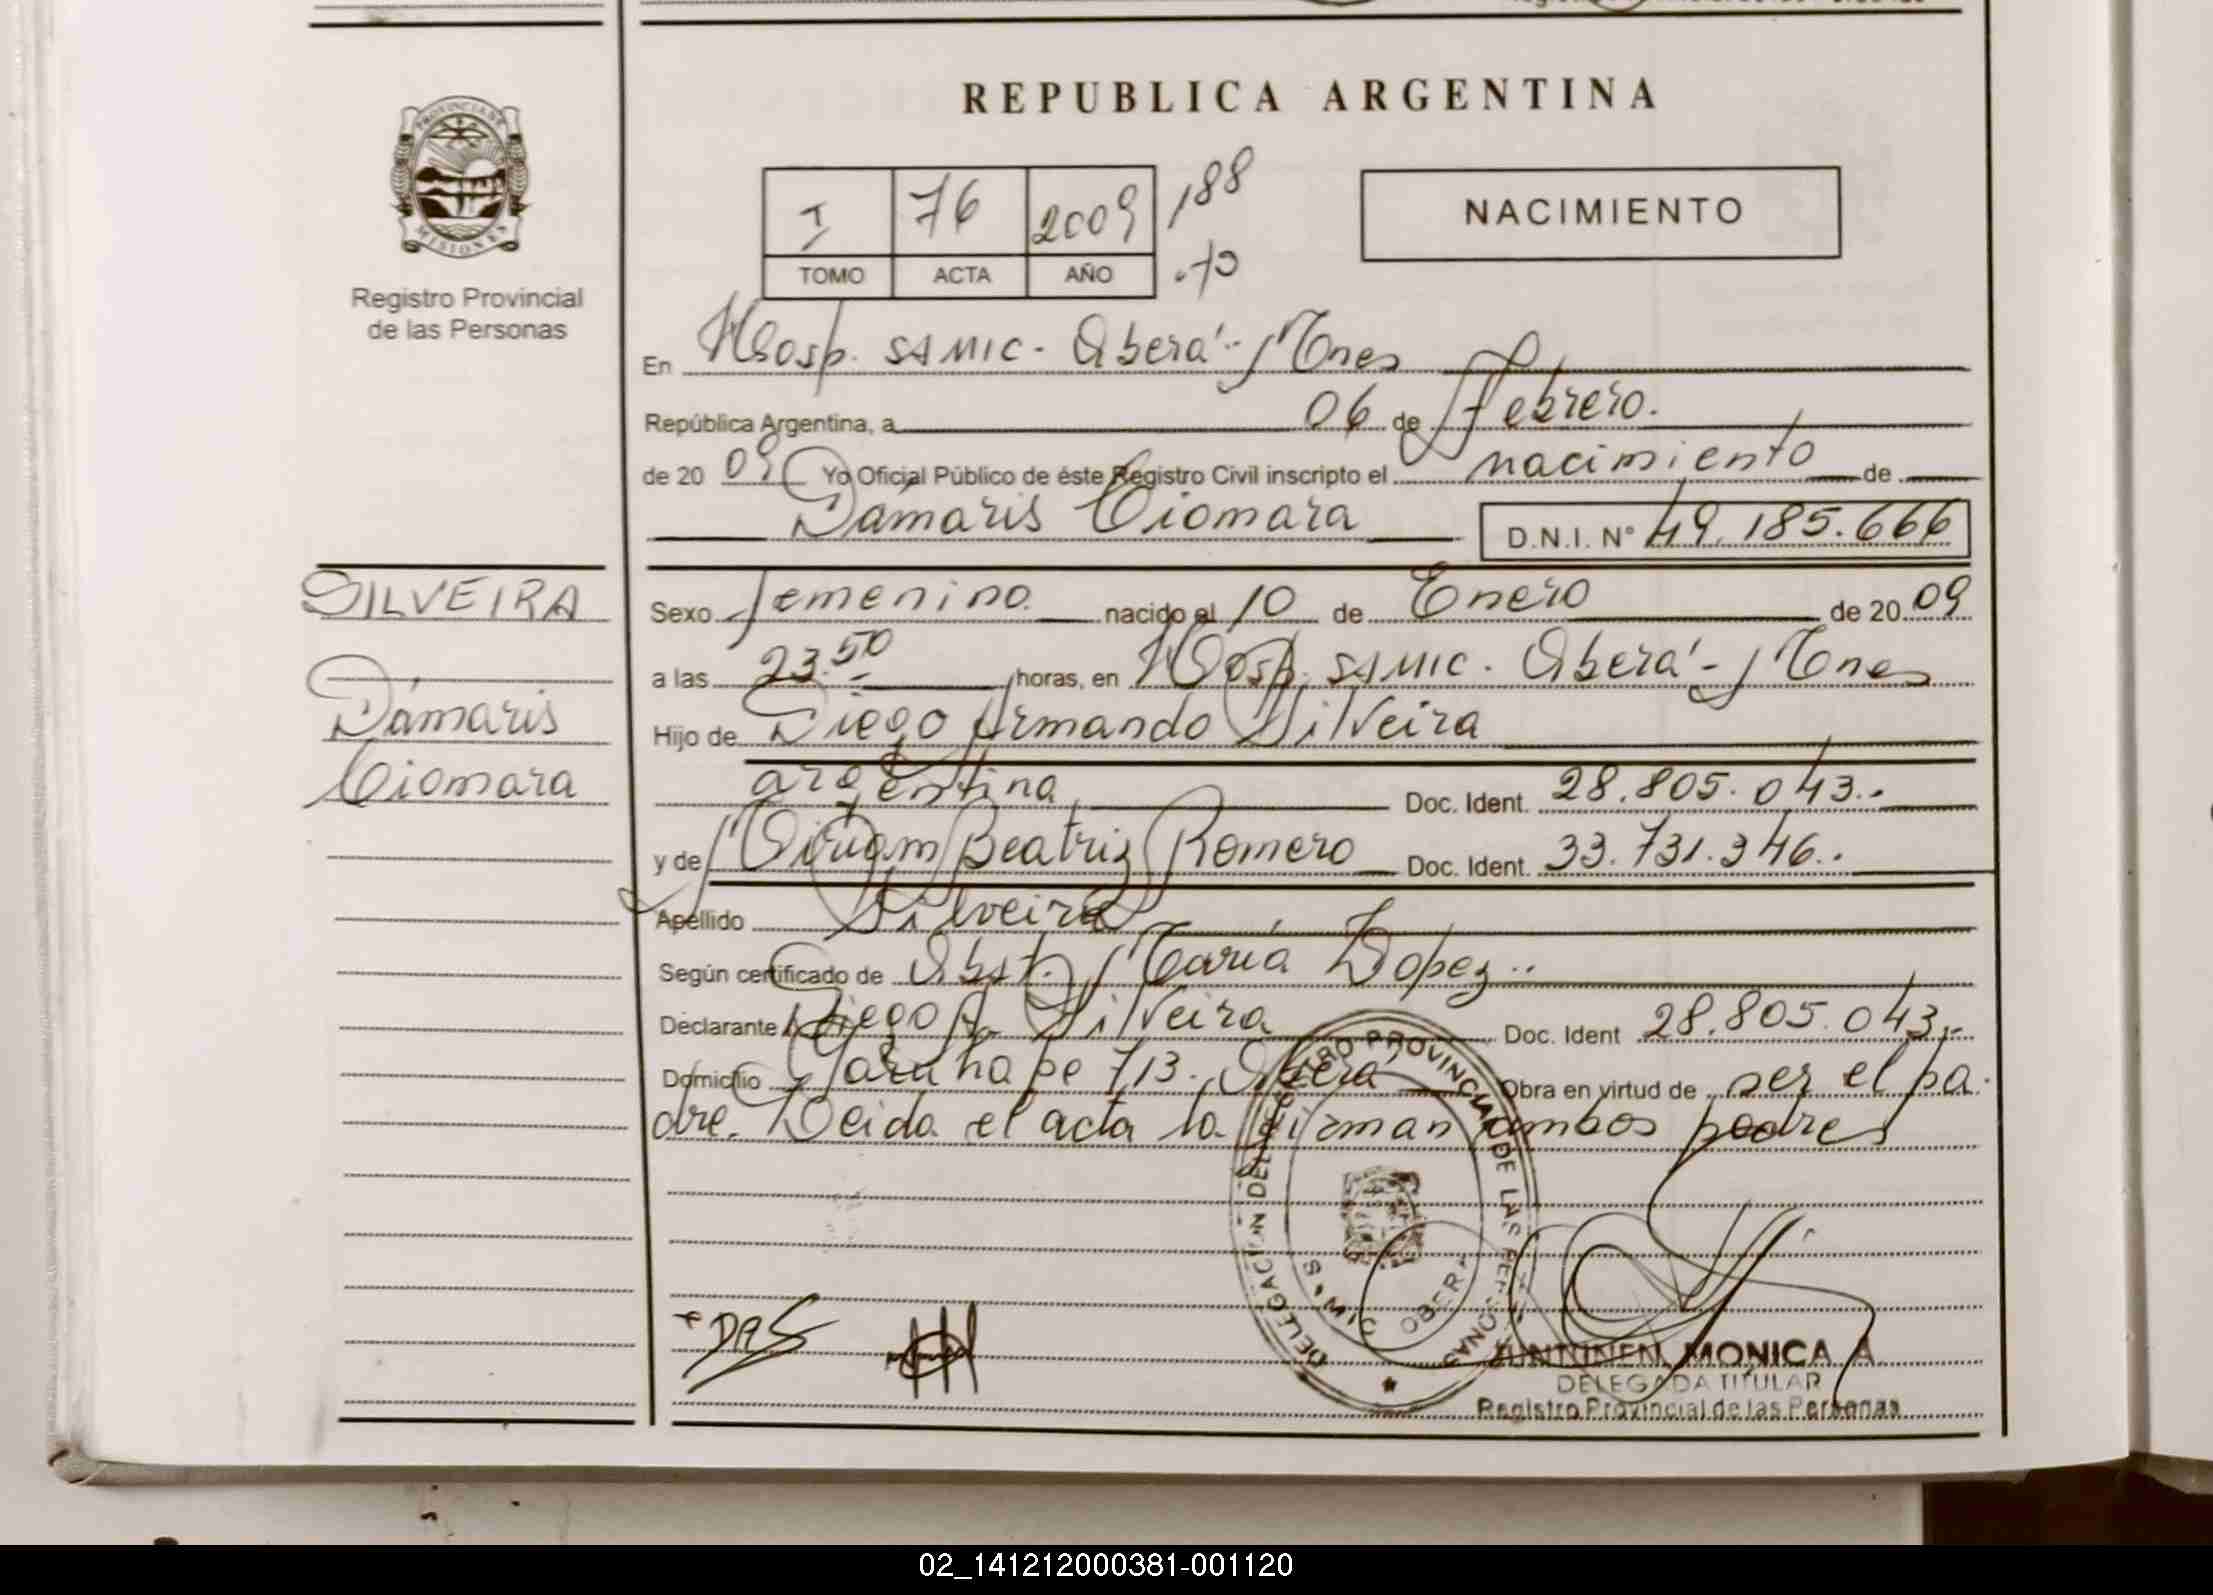 REPUBLICA ARGENTINA
PROVINCIA DE
MISIONES
Registro Provincial
de las Personas
I 76 2009 188
TOMO ACTA AÑO
NACIMIENTO
En Hosp. SAMIC - Oberá - Mnes
República Argentina, a 06 de Febrero.
de 20 09 Yo Oficial Público de éste Registro Civil inscripto el nacimiento de
Dámaris Ciomara D.N.I. Nº 49.185.666
SILVEIRA
Dámaris
Ciomara
Sexo femenino nacido el 10 de Enero de 20 09
a las 23.50 horas, en Hosp. SAMIC - Oberá - Mnes
Hijo de Diego Armando Silveira
argentina Doc. Ident. 28.805.043.-
y de Miriam Beatriz Romero Doc. Ident. 33.731.346..
Apellido Silveira
Según certificado de Obst. María Lopez..
Declarante Diego A. Silveira Doc. Ident 28.805.043.-
Domicilio Garuhape 713. Oberá Obra en virtud de ser el pa-
dre. Leida el acta la firman ambos padres
DELEGACION DEL REGISTRO PROVINCIAL DE LAS PERSONAS
OBERA
DAS
JUNNINEN, MONICA A.
DELEGADA TITULAR
Registro Provincial de las Personas
02_141212000381-001120